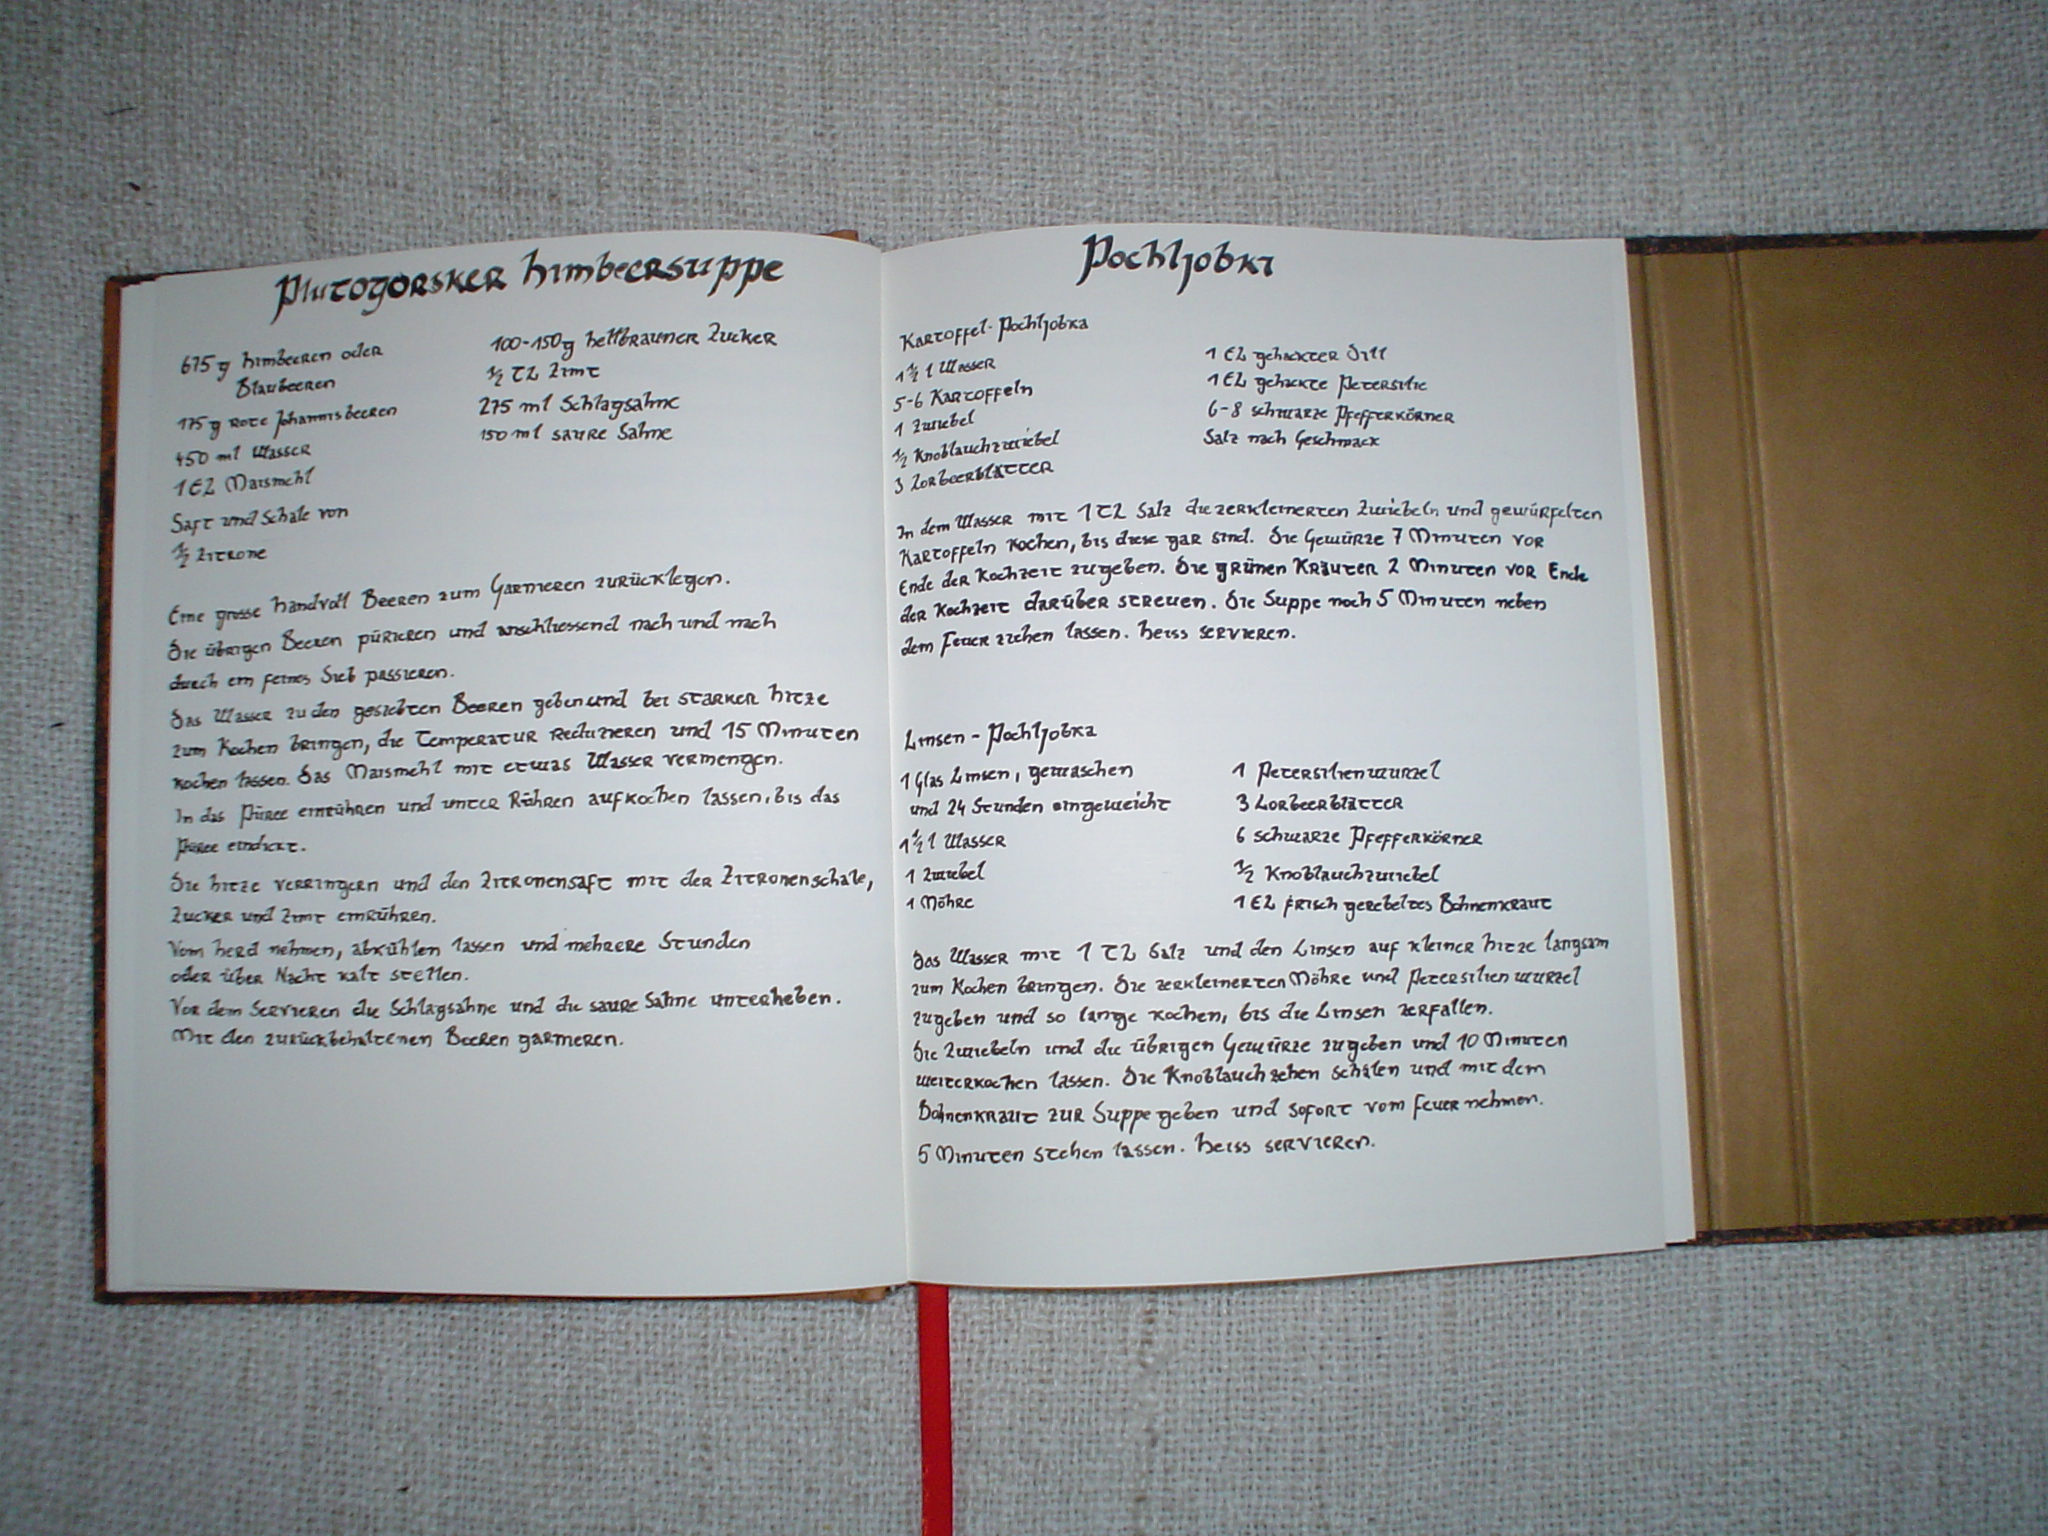 Plutogorsker Himbeersuppe
675 g Himbeeren oder
Blaubeeren
175 g rote Johannisbeeren
450 ml Wasser
1 EL Maismehl
Saft und Schale von
½ Zitrone
100-150g hellbrauner Zucker
½ TL Zimt
275 ml Schlagsahne
150 ml saure Sahne
Eine grosse Handvoll Beeren zum Garnieren zurücklegen.
Die übrigen Beeren pürieren und anschliessend nach und nach
durch ein feines Sieb passieren.
Das Wasser zu den gesiebten Beeren geben und bei starker Hitze
zum Kochen bringen, die Temperatur reduzieren und 15 Minuten
kochen lassen. Das Maismehl mit etwas Wasser vermengen.
In das Püree einrühren und unter Rühren aufkochen lassen, bis das
Püree eindickt.
Die Hitze verringern und den Zitronensaft mit der Zitronenschale,
Zucker und Zimt einrühren.
Vom Herd nehmen, abkühlen lassen und mehrere Stunden
oder über Nacht kalt stellen.
Vor dem Servieren die Schlagsahne und die saure Sahne unterheben.
Mit den zurückbehaltenen Beeren garnieren.
Pochljobki
Kartoffel-Pochljobka
1 ½ l Wasser
5-6 Kartoffeln
1 Zwiebel
½ Knoblauchzwiebel
3 Lorbeerblätter
1 EL gehackter Dill
1 EL gehackte Petersilie
6-8 schwarze Pfefferkörner
Salz nach Geschmack
In dem Wasser mit 1 TL Salz die zerkleinerten Zwiebeln und gewürfelten
Kartoffeln kochen, bis diese gar sind. Die Gewürze 7 Minuten vor
Ende der Kochzeit zugeben. Die grünen Kräuter 2 Minuten vor Ende
der Kochzeit darüber streuen. Die Suppe noch 5 Minuten neben
dem Feuer ziehen lassen. Heiss servieren.
Linsen-Pochljobka
1 Glas Linsen, gewaschen
und 24 Stunden eingeweicht
1 ½ l Wasser
1 Zwiebel
1 Möhre
1 Petersilienwurzel
3 Lorbeerblätter
6 schwarze Pfefferkörner
½ Knoblauchzwiebel
1 EL frisch gerebeltes Bohnenkraut
Das Wasser mit 1 TL Salz und den Linsen auf kleiner Hitze langsam
zum Kochen bringen. Die zerkleinerten Möhre und Petersilienwurzel
zugeben und so lange kochen, bis die Linsen zerfallen.
Die Zwiebeln und die übrigen Gewürze zugeben und 10 Minuten
weiterkochen lassen. Die Knoblauchzehen schälen und mit dem
Bohnenkraut zur Suppe geben und sofort vom Feuer nehmen.
5 Minuten stehen lassen. Heiss servieren.